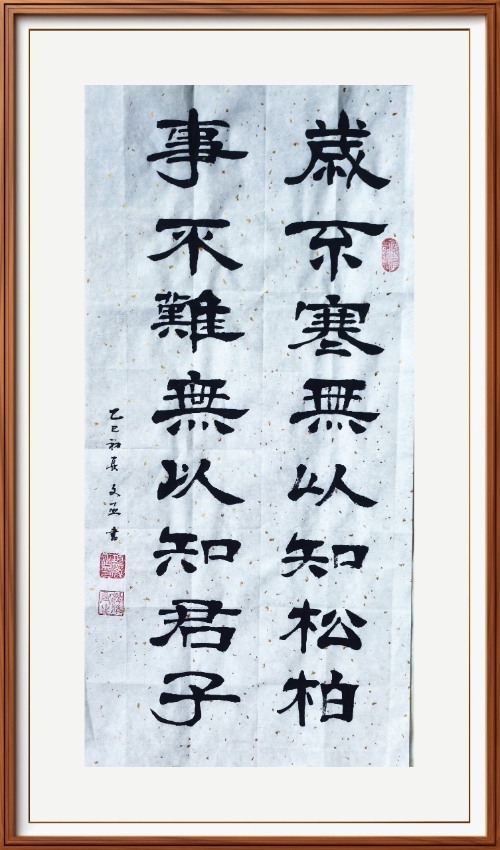 歳不寒無以知松柏
事不難無以知君子
乙巳初夏 文 書